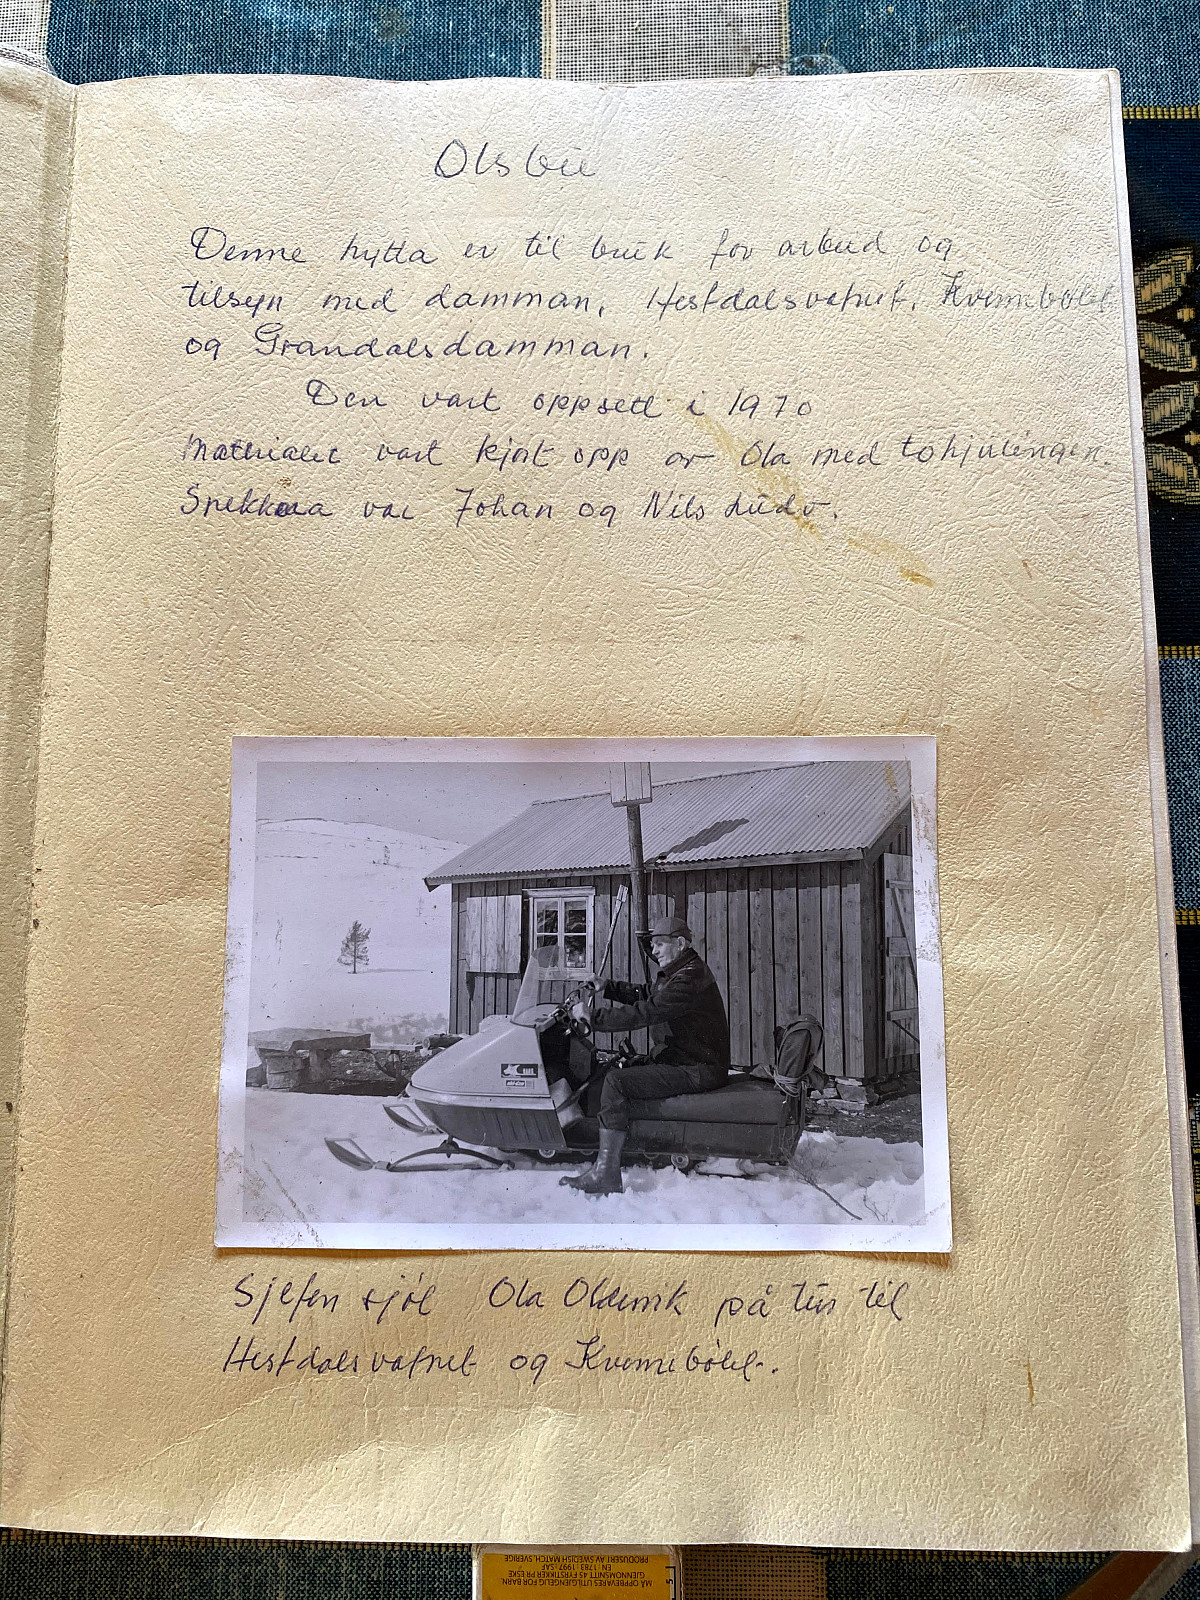 Olsbu
Denne hytta er til bruk for arbeid og
tilsyn med damman, Hestdalsvatnet, Kvennebølet
og Grandalsdamman.
Den vart oppsett i 1970
Matrialet vart kjørt opp av Ola med tohjulingen.
Snekkera var Johan og Nils Ludv.
ski-doo
Sjefen sjøl Ola Oldervik på tur til
Hestdalsvatnet og Kvennebølet.
MÅ OPPBEVARES UTILGJENGELIG FOR BARN
GJENNOMSNITT 45 FYRSTIKKER PR ESKE
EN 1783:1997-SAF
PRODUSERT AV SWEDISH MATCH, SVERIGE